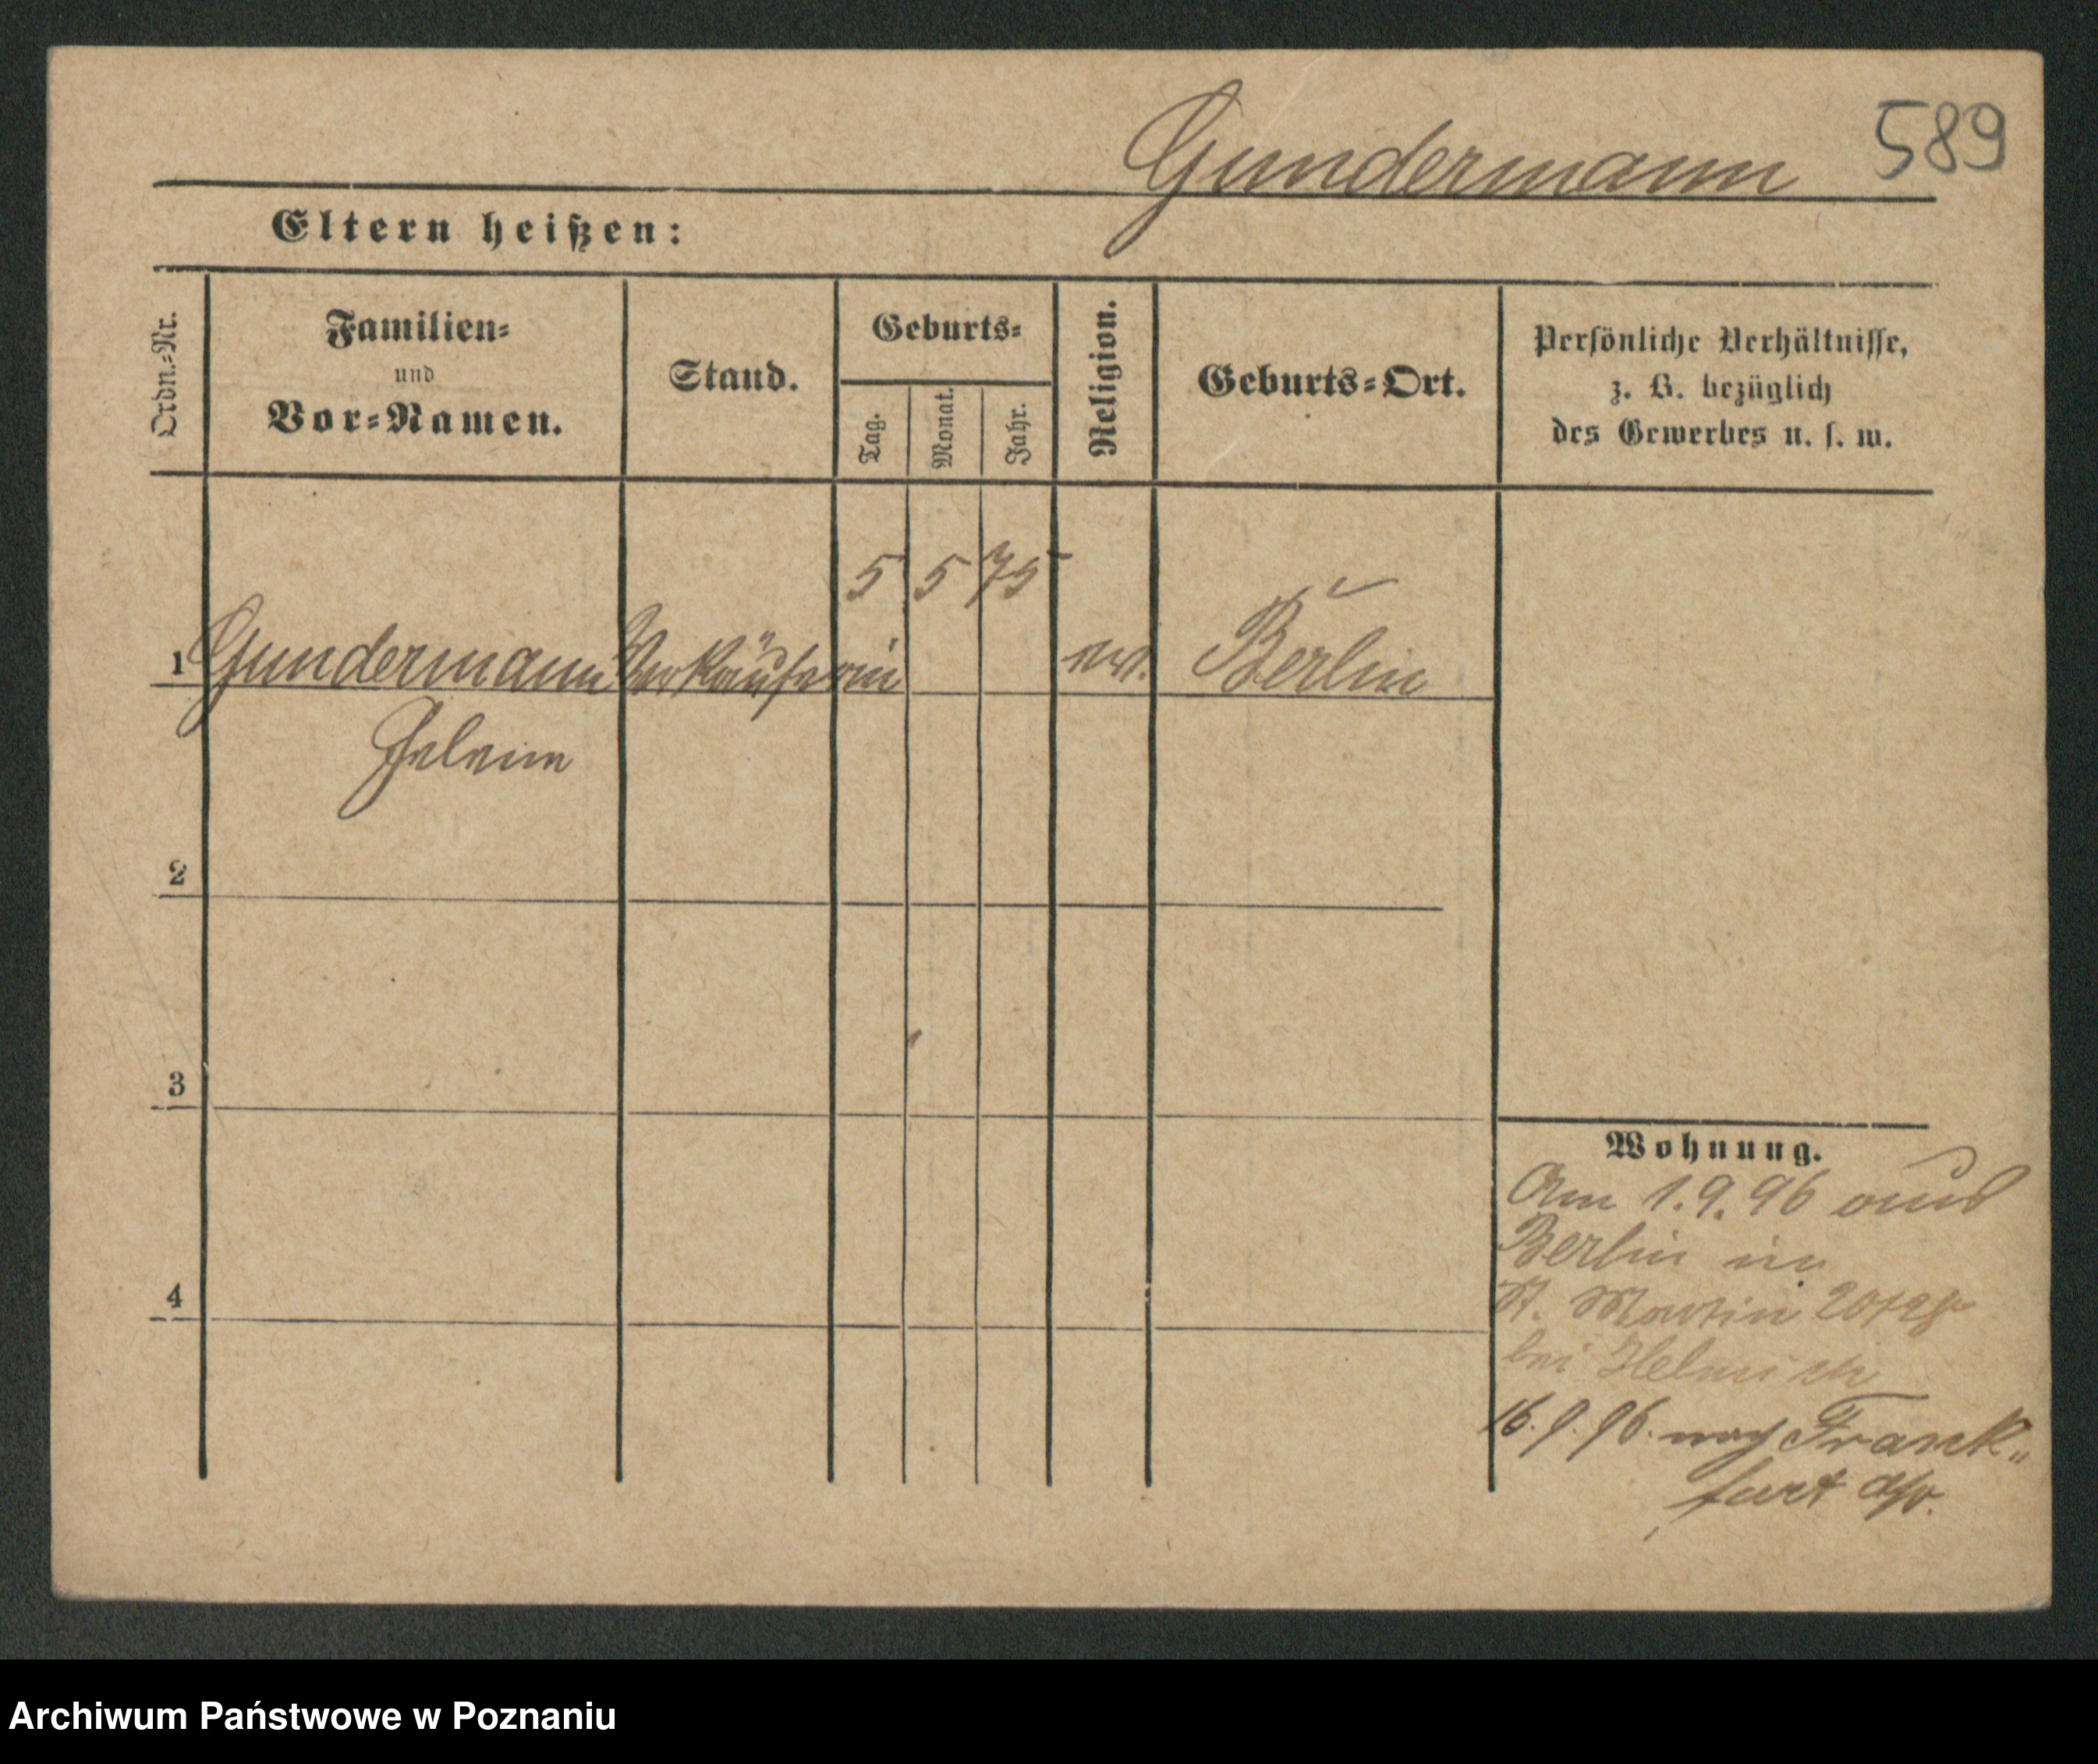 589
Gundermann
Eltern heißen:
Ordn.=Nr.
Familien=
und
Vor=Namen.
Stand.
Geburts=
Tag.
Monat.
Jahr.
Religion.
Geburts=Ort.
Persönliche Verhältnisse,
z. B. bezüglich
des Gewerbes u. s. w.
5 5 75
1 Gundermann Verkäuferin ev. Berlin
Helene
2
3
4
Wohnung.
Am 1.9.96 aus
Berlin in
St. Martin
bei
16.9.96. nach Frank„
furt a/o.
Archiwum Państwowe w Poznaniu